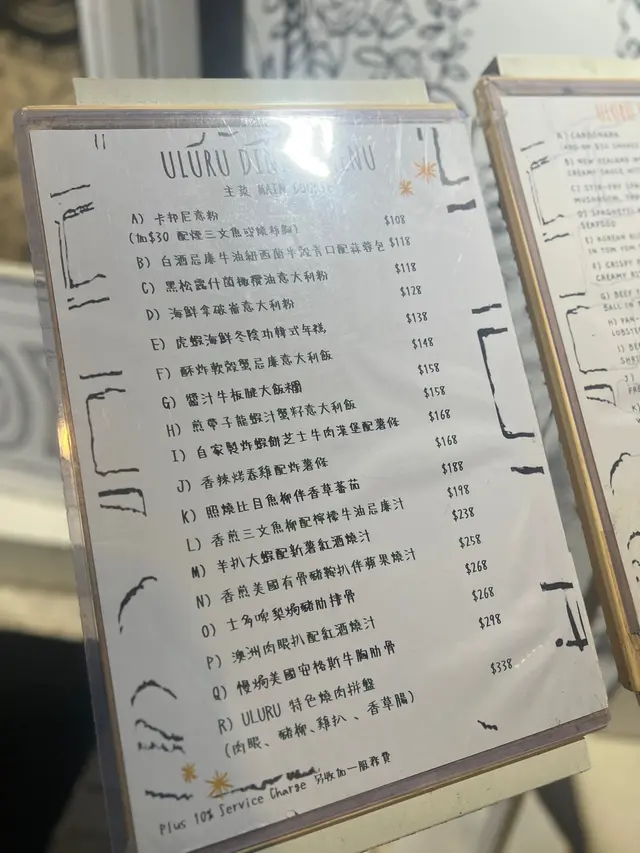 ULURU DINNER MENU
主菜 MAIN COURSE
A) 卡邦尼意粉 $108
(加$30 配煙三文魚或燒春雞)
B) 白酒忌廉牛油紐西蘭半殼青口配蒜蓉包 $118
C) 黑松露什菌橄欖油意大利粉 $118
D) 海鮮拿破崙意大利粉 $128
E) 虎蝦海鮮冬陰功韓式年糕 $138
F) 酥炸軟殼蟹忌廉意大利飯 $148
G) 醬汁牛板腱大飯糰 $158
H) 煎帶子龍蝦汁蟹籽意大利飯 $158
I) 自家製炸蝦餅芝士牛肉漢堡配薯條 $168
J) 香辣烤春雞配炸薯條 $168
K) 照燒比目魚柳伴香草蕃茄 $188
L) 香煎三文魚柳配檸檬牛油忌廉汁 $198
M) 羊扒大蝦配新薯紅酒燒汁 $238
N) 香煎美國有骨豬鞍扒伴蘋果燒汁 $258
O) 士多啤梨焗豬肋排骨 $268
P) 澳洲肉眼扒配紅酒燒汁 $268
Q) 慢焗美國安格斯牛胸肋骨 $298
R) ULURU 特色燒肉拼盤 $338
(肉眼、豬柳、雞扒、香草腸)
Plus 10% Service Charge 另收加一服務費
A) CARBONARA
B) NEW ZEALAND
CREAMY SAUCE
C) STIR-FRY
MUSHROOM,
D) SPAGHETTI
SEAFOOD
E) KOREAN
IN TOM YUM
F) CRISPY
CREAMY
G) BEEF
BALL IN
H) PAN-
LOBSTER